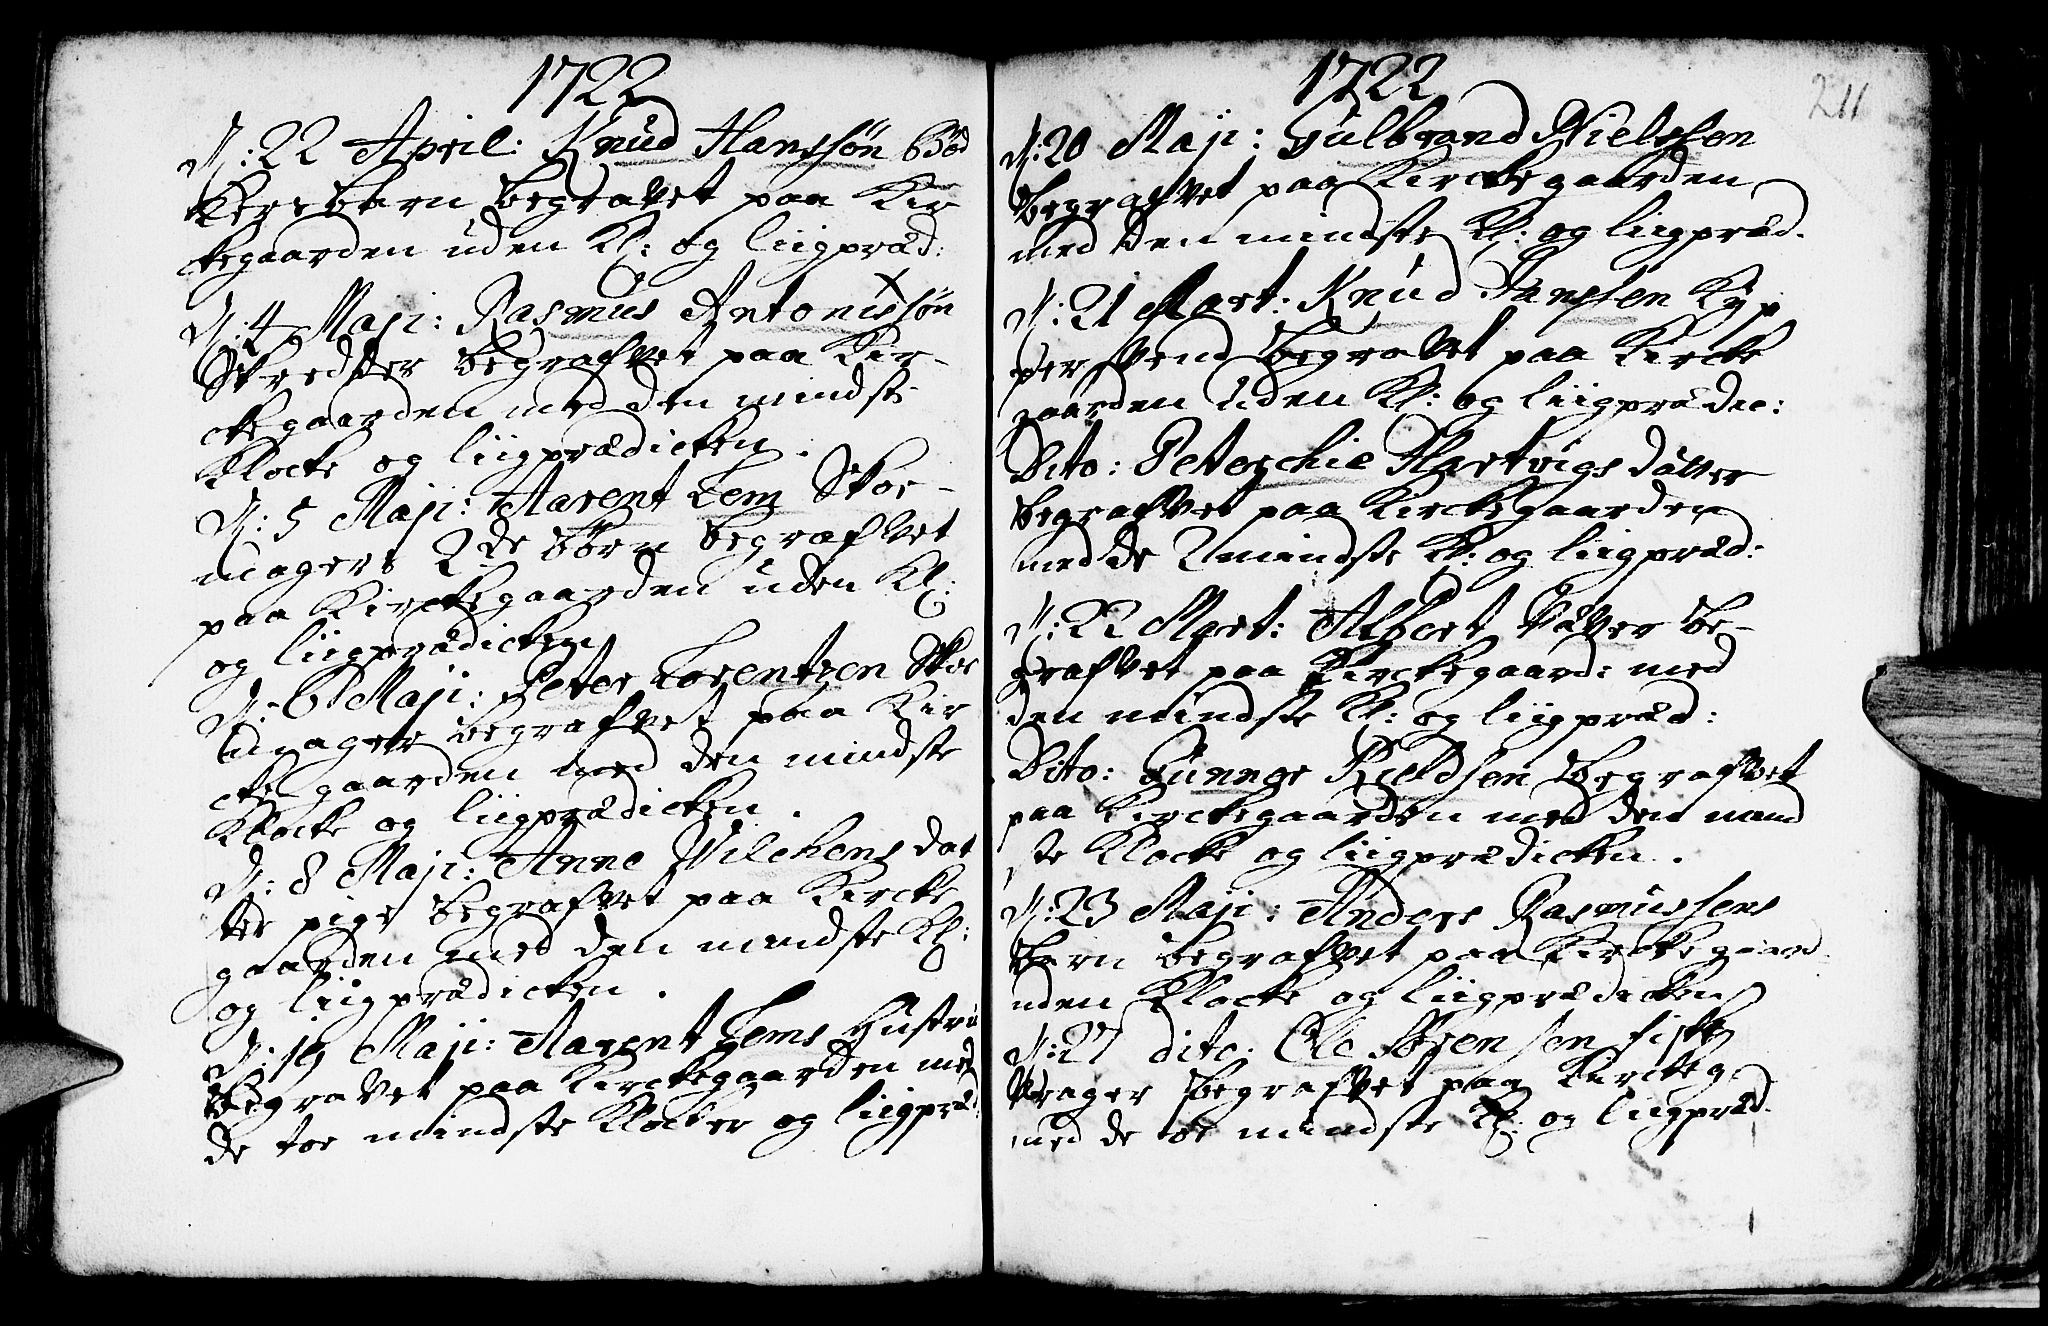 1722
N: 22 April: Knud Hanssøn Bød
kers barn begravet paa Kir
kegaarden uden Kl: og liigpræd:
N: 4 Maji: Rasmus Antonissøn
Skredder begrafvet paa Kir-
ckegaarden med den mindste
Klocke og liigprædicken.
N: 5 Maji: Aarent Lem Skoe-
magers 2de børn begrafvet
paa Kirckegaarden uden Kl:
og liigprædicken
N: 6 Maji: Peter Lorentzen Skoe
mager begrafvet paa Kir
ckegaarden med den mindste
Klocke og liigprædicken.
N: 8 Maji: Anne Wilchens dat
ter pige begrafvet paa Kircke
gaarden med den mindste Kl:
og liigprædicken.
N: 19 Maji: Aarent Lems Hustru
Begravet paa Kirckegaarden med
de toe mindste Klocker og liigpræd:
1722
211
N: 20 Maji: Gulbrand Nielssen
begrafvet paa Kirckegaarden
med den mindste Kl: og liigpræd.
N: 21 Mart: Knud Hanssen Kyp
per svend begravet paa Kircke
gaarden uden Kl: og liigprædic:
Dito: Peterchie Hartvigsdatter
begrafvet paa Kirckegaarden
med de 2 mindste Kl: og liigpræd:
N: 22 Mart: Albert be-
grafvet paa Kirckegaard: med
den mindste Kl: og liigpræd:
Dito: Gunnge Kieldsen begrafvet
paa Kirckegaarden med den mind
ste Klocke og liigprædicken.
N: 23 Maji: Anders Rasmussens
barn begrafvet paa Kirckegaard
uden Klocke og liigprædicken
N: 27 dito: Ole Sørensen fiske
Vrager begrafvet paa Kirckeg
med de toe mindste Kl: og liigpræd.